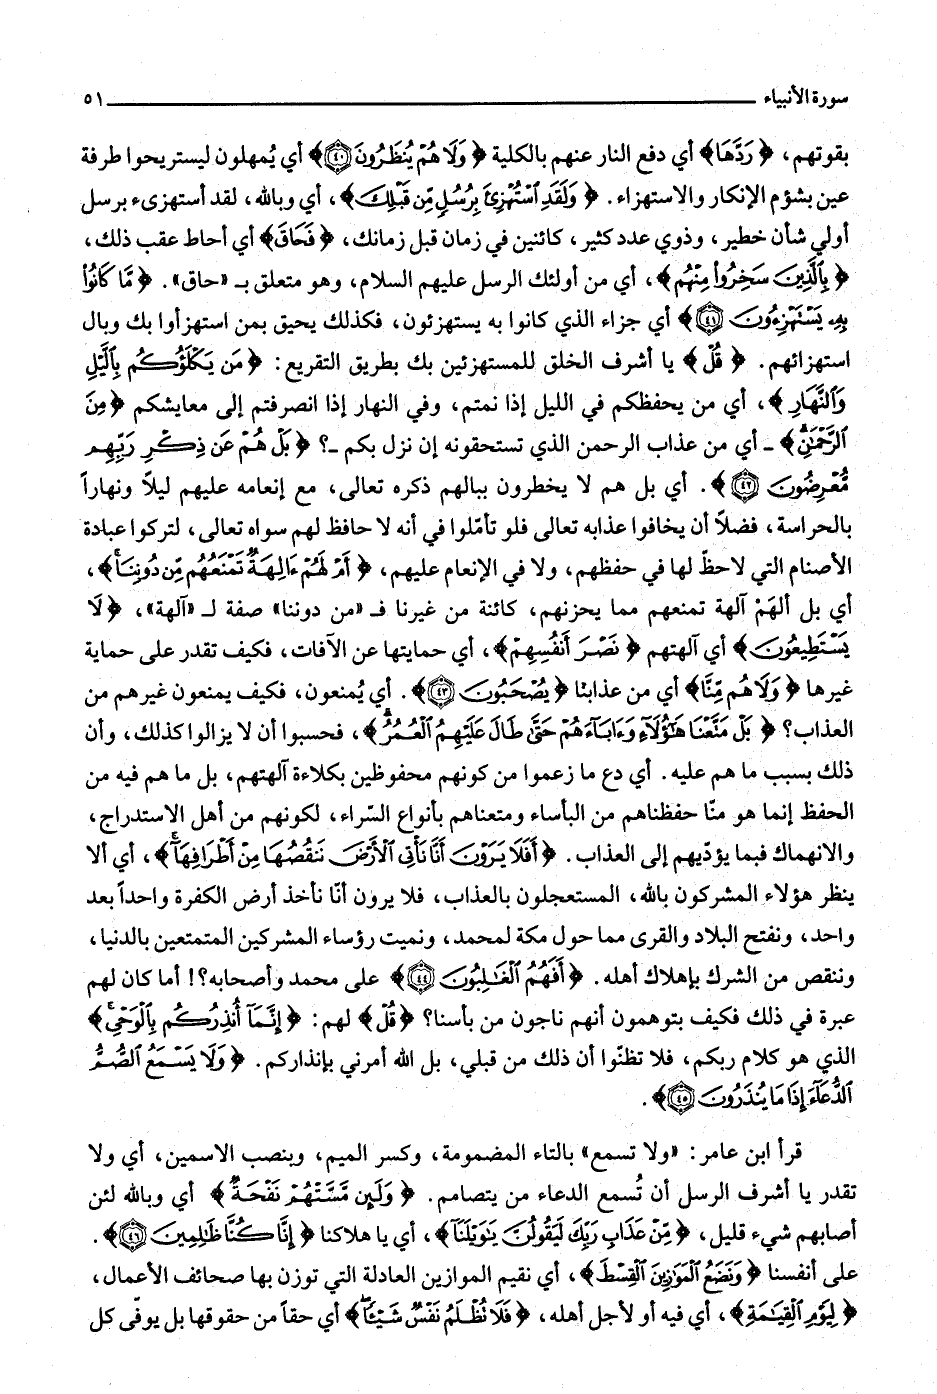 سورة الأنبياء ٥١
بقوتهم، ﴿ رَدَّهَا﴾ أي دفع النار عنهم بالكلية ﴿ وَلَا هُمْ يُنظَرُونَ ٤٠﴾ أي يُمهلون ليستريحوا طرفة
عين بشؤم الإنكار والاستهزاء. ﴿ وَلَقَدِ ٱسْتُهْزِئَ بِرُسُلٍ مِّن قَبْلِكَ﴾، أي وبالله، لقد أستهزىء برسل
أولي شأن خطير، وذوي عدد كثير، كائنين في زمان قبل زمانك، ﴿ فَحَاقَ﴾ أي أحاط عقب ذلك،
﴿ بِٱلَّذِينَ سَخِرُوا۟ مِنْهُم ﴾، أي من أولئك الرسل عليهم السلام، وهو متعلق بـ «حاق». ﴿ مَّا كَانُوا۟
بِهِۦ يَسْتَهْزِءُونَ ٤١﴾ أي جزاء الذي كانوا به يستهزئون، فكذلك يحيق بمن استهزأوا بك وبال
استهزائهم. ﴿ قُلْ ﴾ يا أشرف الخلق للمستهزئين بك بطريق التقريع: ﴿ مَن يَكْلَؤُكُم بِٱلَّيْلِ
وَٱلنَّهَارِ ﴾، أي من يحفظكم في الليل إذا نمتم، وفي النهار إذا انصرفتم إلى معايشكم ﴿ مِنَ
ٱلرَّحْمَٰنِ ﴾ ـ أي من عذاب الرحمن الذي تستحقونه إن نزل بكم ـ؟ ﴿ بَلْ هُمْ عَن ذِكْرِ رَبِّهِم
مُّعْرِضُونَ ٤٢ ﴾. أي بل هم لا يخطرون ببالهم ذكره تعالى، مع إنعامه عليهم ليلاً ونهاراً
بالحراسة، فضلاً أن يخافوا عذابه تعالى فلو تأمّلوا في أنه لا حافظ لهم سواه تعالى، لتركوا عبادة
الأصنام التي لاحظّ لها في حفظهم، ولا في الإنعام عليهم، ﴿ أَمْ لَهُمْ ءَالِهَةٌ تَمْنَعُهُم مِّن دُونِنَا﴾،
أي بل ألهَمْ آلهة تمنعهم مما يحزنهم، كائنة من غيرنا فـ «من دوننا» صفة لـ «آلهة»، ﴿ لَا
يَسْتَطِيعُونَ ﴾ أي آلهتهم ﴿ نَصْرَ أَنفُسِهِمْ﴾، أي حمايتها عن الآفات، فكيف تقدر على حماية
غيرها ﴿ وَلَا هُم مِّنَّا﴾ أي من عذابنا ﴿ يُصْحَبُونَ ٤٣﴾. أي يُمنعون، فكيف يمنعون غيرهم من
العذاب؟ ﴿ بَلْ مَتَّعْنَا هَٰٓؤُلَآءِ وَءَابَآءَهُمْ حَتَّىٰ طَالَ عَلَيْهِمُ ٱلْعُمُرُ﴾، فحسبوا أن لا يزالوا كذلك، وأن
ذلك بسبب ما هم عليه. أي دع ما زعموا من كونهم محفوظين بكلاءة آلهتهم، بل ما هم فيه من
الحفظ إنما هو منّا حفظناهم من البأساء ومتعناهم بأنواع السّراء، لكونهم من أهل الاستدراج،
والانهماك فيما يؤدّيهم إلى العذاب. ﴿ أَفَلَا يَرَوْنَ أَنَّا نَأْتِى ٱلْأَرْضَ نَنقُصُهَا مِنْ أَطْرَافِهَآ﴾، أي ألا
ينظر هؤلاء المشركون بالله، المستعجلون بالعذاب، فلا يرون أنّا نأخذ أرض الكفرة واحداً بعد
واحد، ونفتح البلاد والقرى مما حول مكة لمحمد، ونميت رؤساء المشركين المتمتعين بالدنيا،
وننقص من الشرك بإهلاك أهله. ﴿ أَفَهُمُ ٱلْغَٰلِبُونَ ٤٤﴾ على محمد وأصحابه؟! أما كان لهم
عبرة في ذلك فكيف بتوهمون أنهم ناجون من بأسنا؟ ﴿ قُلْ﴾ لهم: ﴿ إِنَّمَآ أُنذِرُكُم بِٱلْوَحْىِ﴾
الذي هو كلام ربكم، فلا تظنّوا أن ذلك من قبلي، بل الله أمرني بإنذاركم. ﴿ وَلَا يَسْمَعُ ٱلصُّمُّ
ٱلدُّعَآءَ إِذَا مَا يُنذَرُونَ ٤٥﴾.
قرأ ابن عامر: «ولا تسمع» بالتاء المضمومة، وكسر الميم، وبنصب الاسمين، أي ولا
تقدر يا أشرف الرسل أن تُسمع الدعاء من يتصامم. ﴿ وَلَئِن مَّسَّتْهُمْ نَفْحَةٌ ﴾ أي وبالله لئن
أصابهم شيء قليل، ﴿ مِّنْ عَذَابِ رَبِّكَ لَيَقُولُنَّ يَٰوَيْلَنَآ ﴾، أي يا هلاكنا ﴿ إِنَّا كُنَّا ظَٰلِمِينَ ٤٦﴾.
على أنفسنا ﴿ وَنَضَعُ ٱلْمَوَٰزِينَ ٱلْقِسْطَ ﴾، أي نقيم الموازين العادلة التي توزن بها صحائف الأعمال،
﴿ لِيَوْمِ ٱلْقِيَٰمَةِ ﴾، أي فيه أو لأجل أهله، ﴿ فَلَا تُظْلَمُ نَفْسٌ شَيْـًٔا﴾ أي حقاً من حقوقها بل يوفّى كل